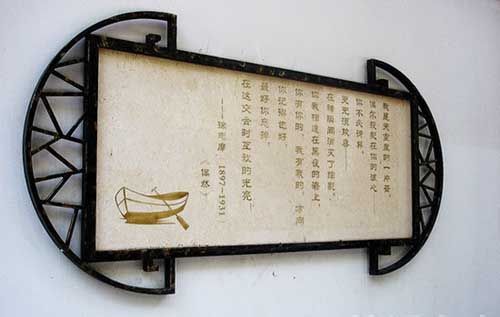 我是天空里的一片云，
偶尔投影在你的波心
你不必讶异，
更无须欢喜
在转瞬间消灭了踪影。
你我相逢在黑夜的海上，
你有你的，我有我的，方向
你记得也好，
最好你忘掉，
在这交会时互放的光亮。
——徐志摩 1897-1931
《偶然》